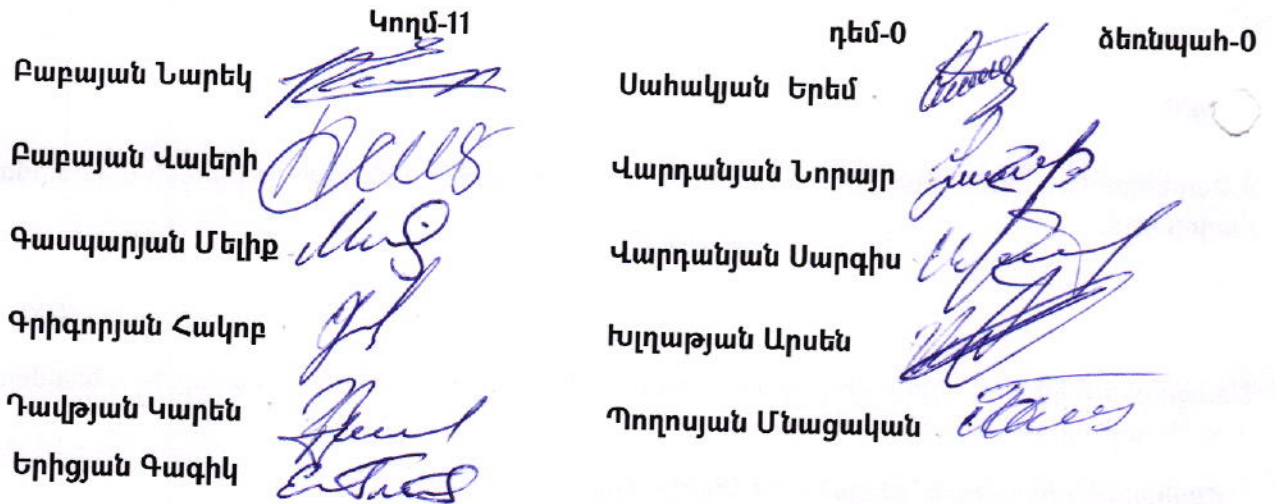 Կողմ-11 դեմ-0 ձեռնպահ-0
Բաբայան Նարեկ
Բաբայան Վալերի
Գասպարյան Մելիք
Գրիգորյան Հակոբ
Դավթյան Կարեն
Երիցյան Գագիկ
Սահակյան Երեմ
Վարդանյան Նորայր
Վարդանյան Սարգիս
Խլղաթյան Արսեն
Պողոսյան Մնացական